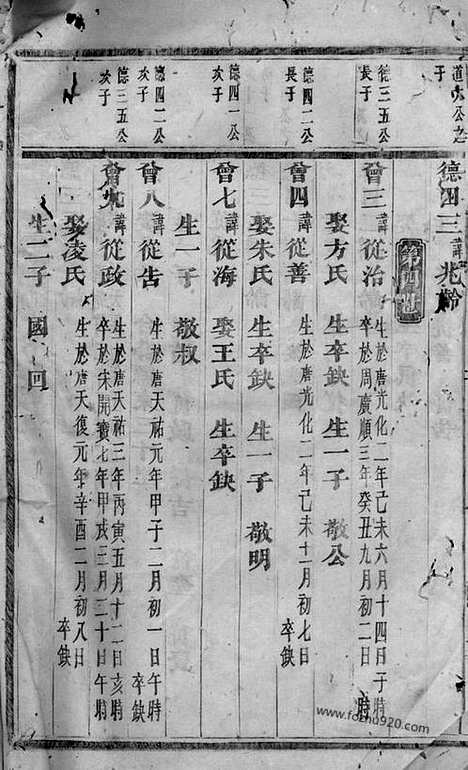 道六公之
子
德四三諱兆齡
第九世
德三五公
長子
曾三諱從治生於唐光化二年己未六月十四日子時
卒於周廣順三年癸丑九月初二日
娶方氏 生卒缺 生一子 敬公
德四二公
長子
曾四諱從善 生於唐光化二年己未十一月初七日
卒缺
娶朱氏 生卒缺 生一子 敬明
德四一公
次子
曾七諱從海 娶王氏 生卒缺
生一子 敬叔
德四二公
次子
曾八諱從吉 生於唐天祐元年甲子二月初一日午時
卒缺
德三五公
次子
曾九諱從政生於唐天祐三年丙寅五月十二日亥時
卒於宋開寶七年甲戌三月二十日午時
娶凌氏 生於唐天復元年辛酉二月初八日
卒缺
生二子 國 回
www.fozhu920.com